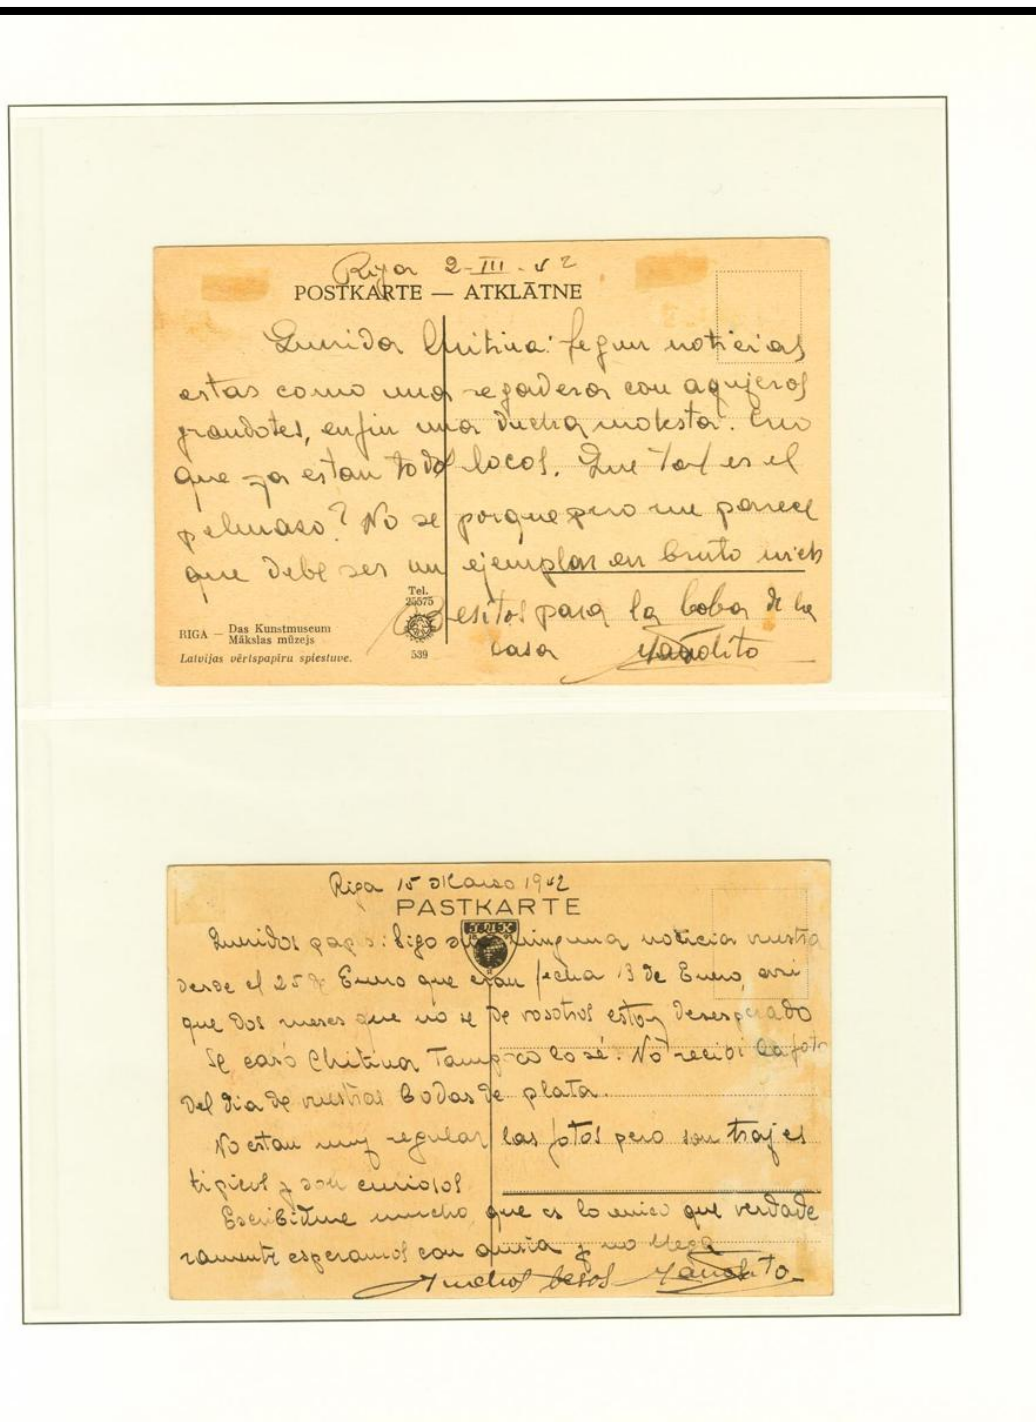 Riga 2-III-42
POSTKARTE — ATKLĀTNE
Querida Chitina: Segun noticias
estas como una regadera con agujeros
grandotes, enfin una ducha molesta. Creo
que ya estan todos locos. Que tal es el
pelmaso? No se porque pero me parece
que debe ser un ejemplar en bruto
Tel.
25575
Besitos para la boba de la
casa Manolito
RIGA — Das Kunstmuseum
Mākslas mūzejs
539
Latvijas vērtspapiru spiestuve.
Riga 15 Marso 1942
PASTKARTE
Queridos papas: Sigo sin ninguna noticia vuestra
desde el 25 de Enero que eran fecha 13 de Enero, asi
que dos meses que no se de vosotros estoy desesperado
Se casó Chitina Tampoco lo sé. No recibi la foto
del dia de vuestras Bodas de plata.
No estan muy regular las fotos pero son trajes
tipicos y son curiosos
Escribidme mucho que es lo unico que verdade
ramente esperamos con ansia y no llega
Muchos besos Manolito